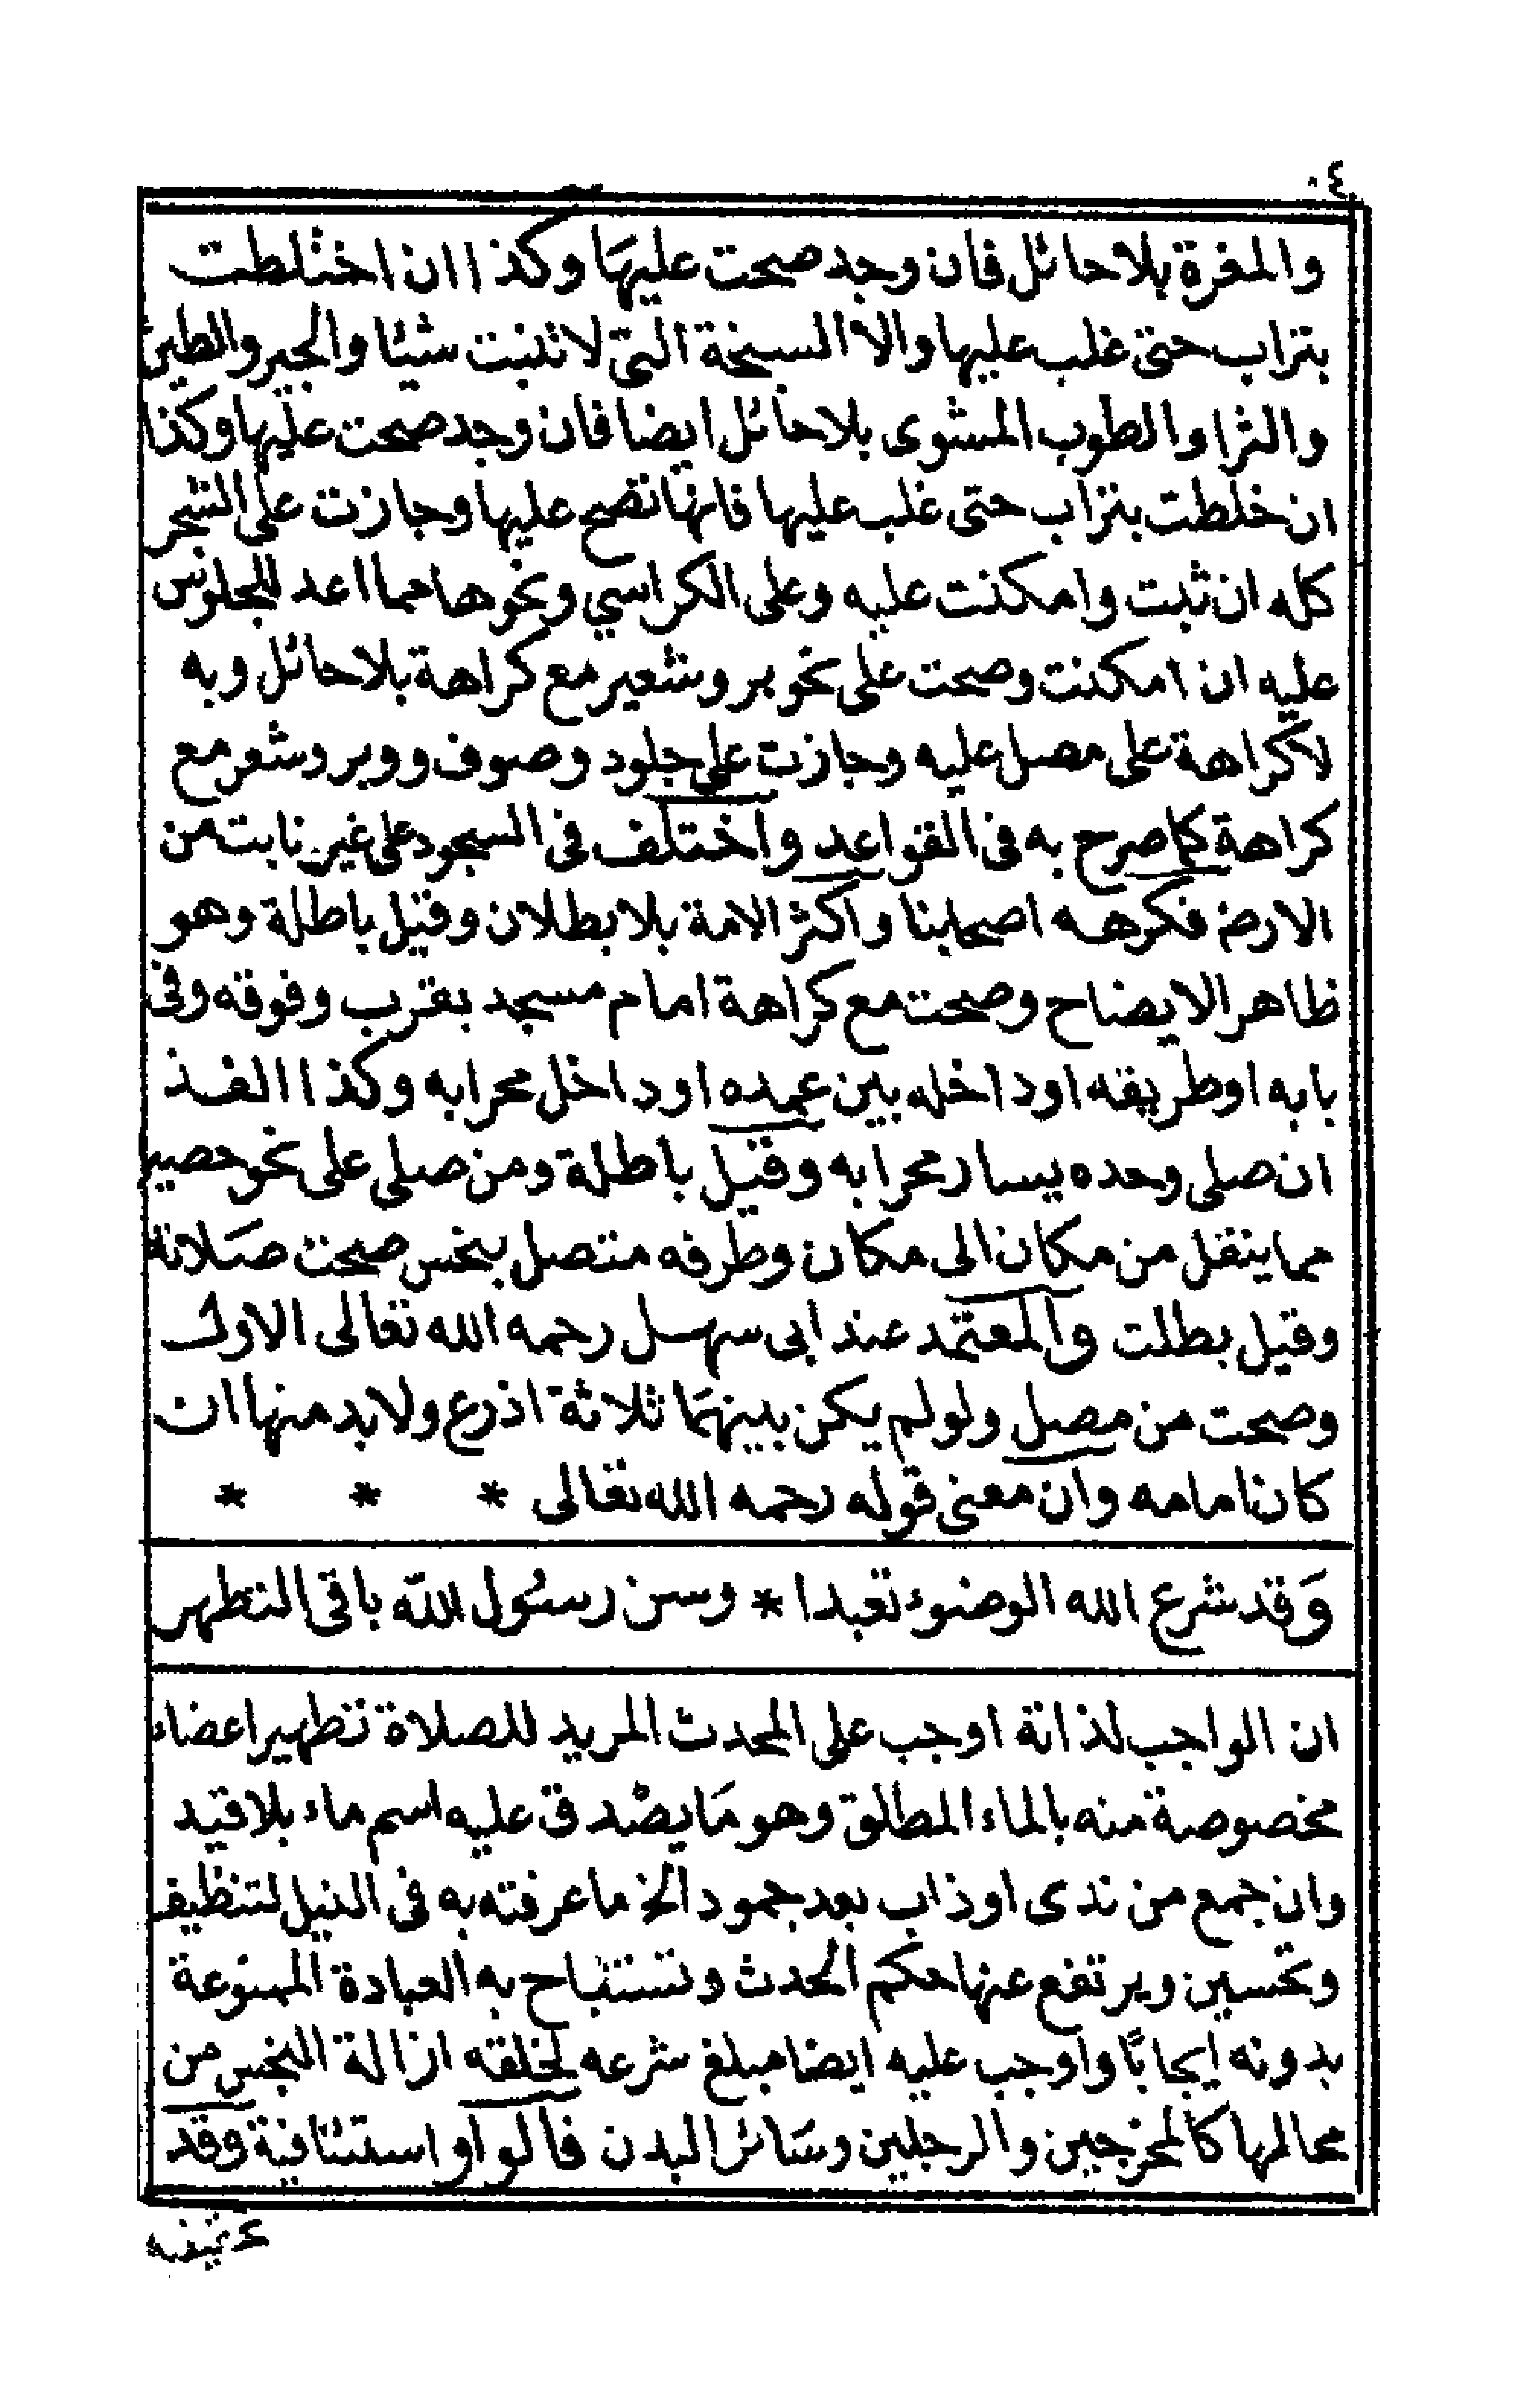 ٤٠
والمغرة بلا حائل فان وجد صحت عليها وكذا ان اختلطت
بتراب حتى غلب عليها والا السبخة التى لا تنبت شيئا والجير والطين
والثرا والطوب المشوى بلا حائل ايضا فان وجد صحت عليها وكذا
ان خلطت بتراب حتى غلب عليها فانها تصح عليها وجازت على الشجر
كله ان ثبت وامكنت عليه وعلى الكراسي ونحوها مما اعد للجلوس
عليه ان امكنت وصحت على نحو بر وشعير مع كراهة بلا حائل وبه
لا كراهة على مصل عليه وجازت على جلود وصوف ووبر وشعر مع
كراهة كما صرح به فى القواعد واختلف فى السجود على غير نابت من
الارض فكرهه اصحابنا واكثر الامة بلا بطلان وقيل باطلة وهو
ظاهر الايضاح وصحت مع كراهة امام مسجد بقرب وفوقه وفى
بابه او طريقه او داخله بين عمده او داخل محرابه وكذا الفذ
ان صلى وحده يسار محرابه وقيل باطلة ومن صلى على نحو حصير
مما ينقل من مكان الى مكان وطرفه متصل بنجس صحت صلاته
وقيل بطلت والمعتمد عند ابى سهل رحمه الله تعالى الاول
وصحت من مصل ولو لم يكن بينهما ثلاثة اذرع ولا بد منها ان
كان امامه وان معنى قوله رحمه الله تعالى * * *
وقد شرع الله الوضوء تعبدا * وسن رسول الله باقى التطهر
ان الواجب لذاته اوجب على المحدث المريد للصلاة تطهير اعضاء
مخصوصة منه بالماء المطلق وهو ما يصدق عليه اسم ماء بلا قيد
وان جمع من ندى او ذاب بعد جمود الخ ما عرفته به فى النيل لتنظيف
وتحسين ويرتفع عنها حكم الحدث وتستباح به العبادة الممنوعة
بدونه ايجابًا واوجب عليه ايضا مبلغ شرعه لخلقه ازالة النجس من
محالها كالمخرجين والرجلين وسائر البدن فالواو استئنافية وقد